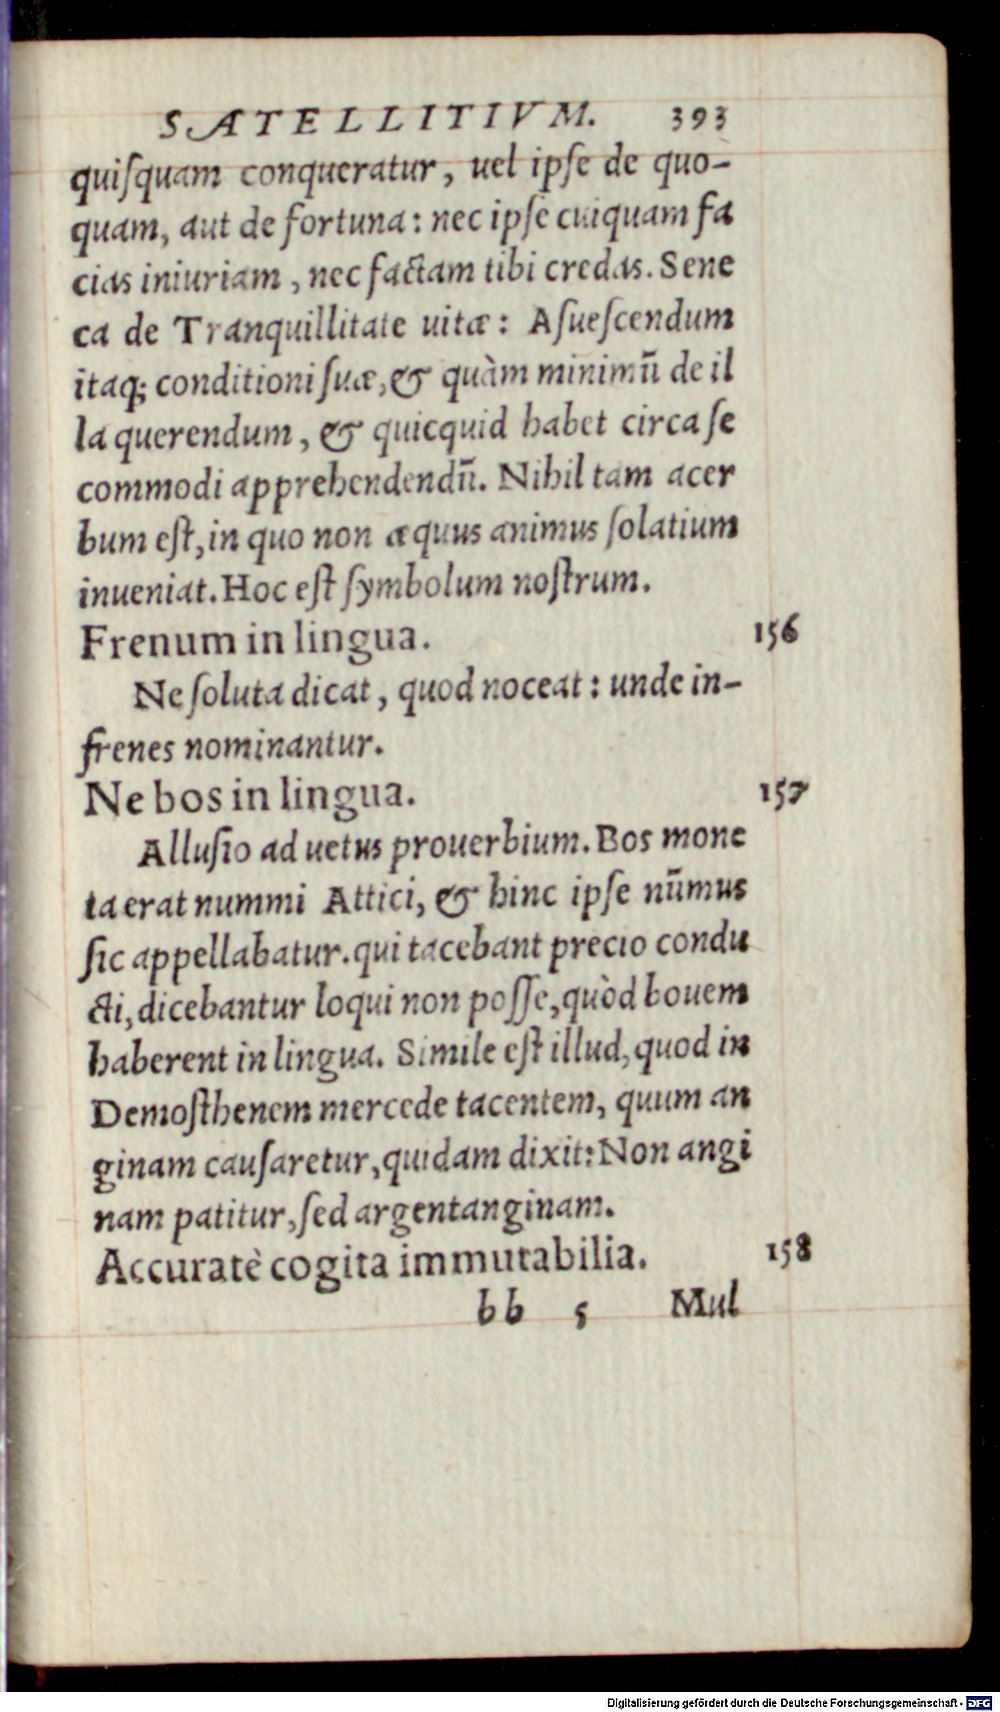 SATELLITIVM. 393
quiſquam conqueratur, uel ipſe de quo-
quam, aut de fortuna: nec ipſe cuiquam fa
cias iniuriam, nec factam tibi credas. Sene
ca de Tranquillitate uitæ: Aſueſcendum
itaq; conditioni ſuæ, & quàm minimū de il
la querendum, & quicquid habet circa ſe
commodi apprehendendū. Nihil tam acer
bum eſt, in quo non æquus animus ſolatium
inueniat. Hoc eſt ſymbolum noſtrum.
Frenum in lingua. 156
Ne ſoluta dicat, quod noceat: unde in-
frenes nominantur.
Ne bos in lingua. 157
Alluſio ad uetus prouerbium. Bos mone
ta erat nummi Attici, & hinc ipſe nūmus
ſic appellabatur. qui tacebant precio condu
cti, dicebantur loqui non poſſe, quòd bouem
haberent in lingua. Simile eſt illud, quod in
Demoſthenem mercede tacentem, quum an
ginam cauſaretur, quidam dixit: Non angi
nam patitur, ſed argentanginam.
Accuratè cogita immutabilia. 158
bb 5 Mul
Digitalisierung gefördert durch die Deutsche Forschungsgemeinschaft - DFG